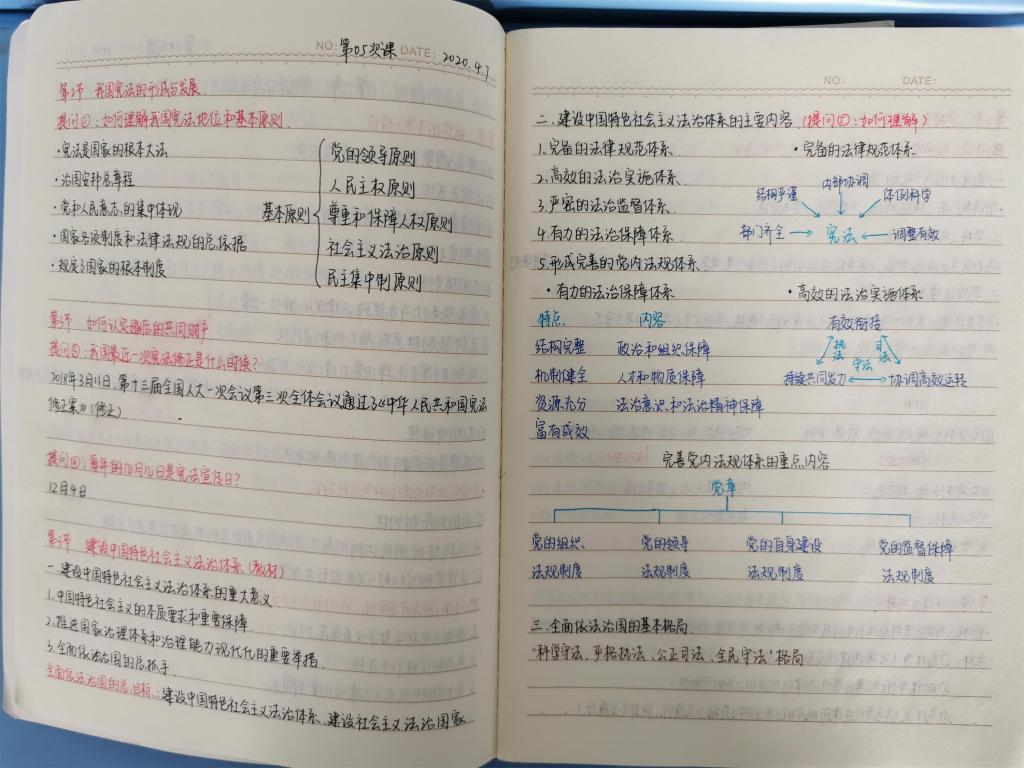 NO: 第05次课 DATE: 2020.4.7
第2节 我国宪法的形成与发展
提问①:如何理解我国宪法地位和基本原则
·宪法是国家的根本大法
·治国安邦总章程
·党和人民意志的集中体现
·国家各项制度和法律法规的总依据
·规定了国家的根本制度
基本原则
党的领导原则
人民主权原则
尊重和保障人权原则
社会主义法治原则
民主集中制原则
第3节
提问②:我国最近一次宪法修正是什么时候?
2018年3月11日,第十三届全国人大一次会议第三次全体会议通过了《中华人民共和国宪法
修正案》(修正)
提问④:每年的几月几日是宪法宣传日?
12月4日
第3节 建设中国特色社会主义法治体系(教材)
一.建设中国特色社会主义法治体系的重大意义
1.中国特色社会主义的本质要求和重要保障
2.推进国家治理体系和治理能力现代化的重要举措.
3.全面依法治国的总抓手
全面依法治国的总目标:建设中国特色社会主义法治体系、建设社会主义法治国家
NO: DATE:
二.建设中国特色社会主义法治体系的主要内容(提问⑤:如何理解)
1.完备的法律规范体系
2.高效的法治实施体系
3.严密的法治监督体系
4.有力的法治保障体系
5.形成完善的党内法规体系
·完备的法律规范体系
结构严谨
内部协调
体例科学
部门齐全
宪法
调整有效
·有力的法治保障体系
特点 内容
结构完整 政治和组织保障
机制健全 人才和物质保障
资源充分 法治意识和法治精神保障
富有成效
·高效的法治实施体系
有效衔接
执法
司法
守法
持续共同发力
协调高效运转
完善党内法规体系的重点内容
党章
党的组织 党的领导 党的自身建设 党的监督保障
法规制度 法规制度 法规制度 法规制度
三.全面依法治国的基本格局
"科学守法,严格执法、公正司法、全民守法"格局